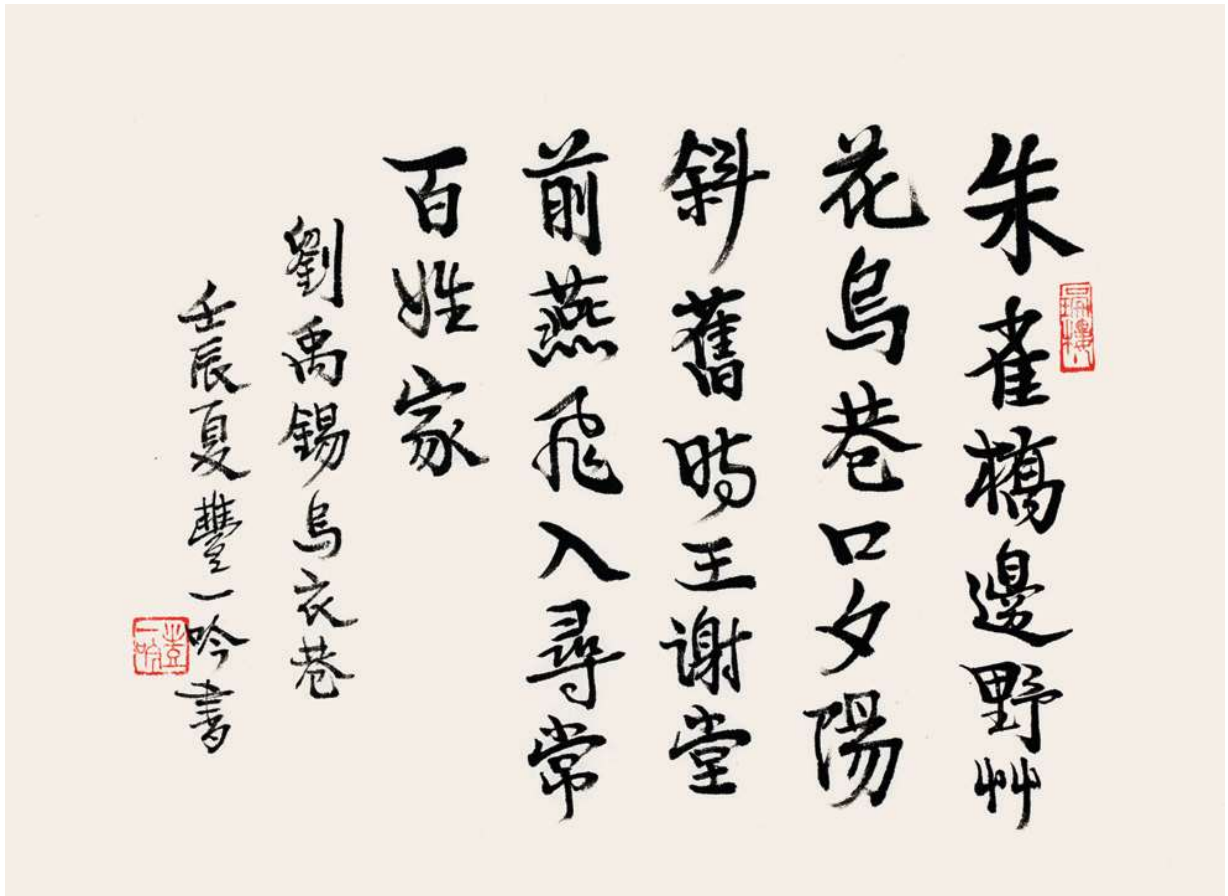 朱雀橋邊野艸
花烏巷口夕陽
斜舊時王謝堂
前燕飛入尋常
百姓家
劉禹錫烏衣巷
壬辰夏豐一吟書
豐一吟